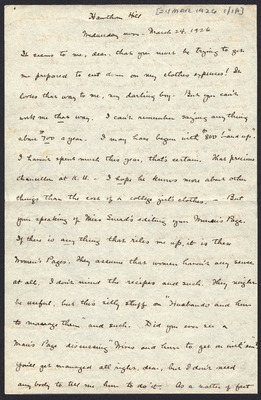 [24 MAR 1926 1/1A]
Hawthorn Hill
Wednesday morn. March 24, 1926
It seems to me, dear, that you must be trying to get
me prepared to cut down on my clothes expenses! It
looks that way to me, my darling boy. But you can't
work me that way. I can't remember saying anything
about $700 a year. I may have begun with "$800 and up".
I haven't spent much this year, that's certain. That precious
chancellor at K.U. - I hope he knows more about other
things than the cost of a college girl's clothes. - But
your speaking of Miss Sword's editing your Woman's Page.
If there is any thing that riles me up, it is these
Women's Pages. They assume that women haven't any sense
at all. I don't mind the recipes and such. They might
be useful, but this silly stuff on "Husbands and how
to manage them and such. Did you ever see a
Man's Page discussing "Wives and how to get on with 'em"?
You'll get managed all right, dear, but I don't need
any body to tell me how to do it. As a matter of fact